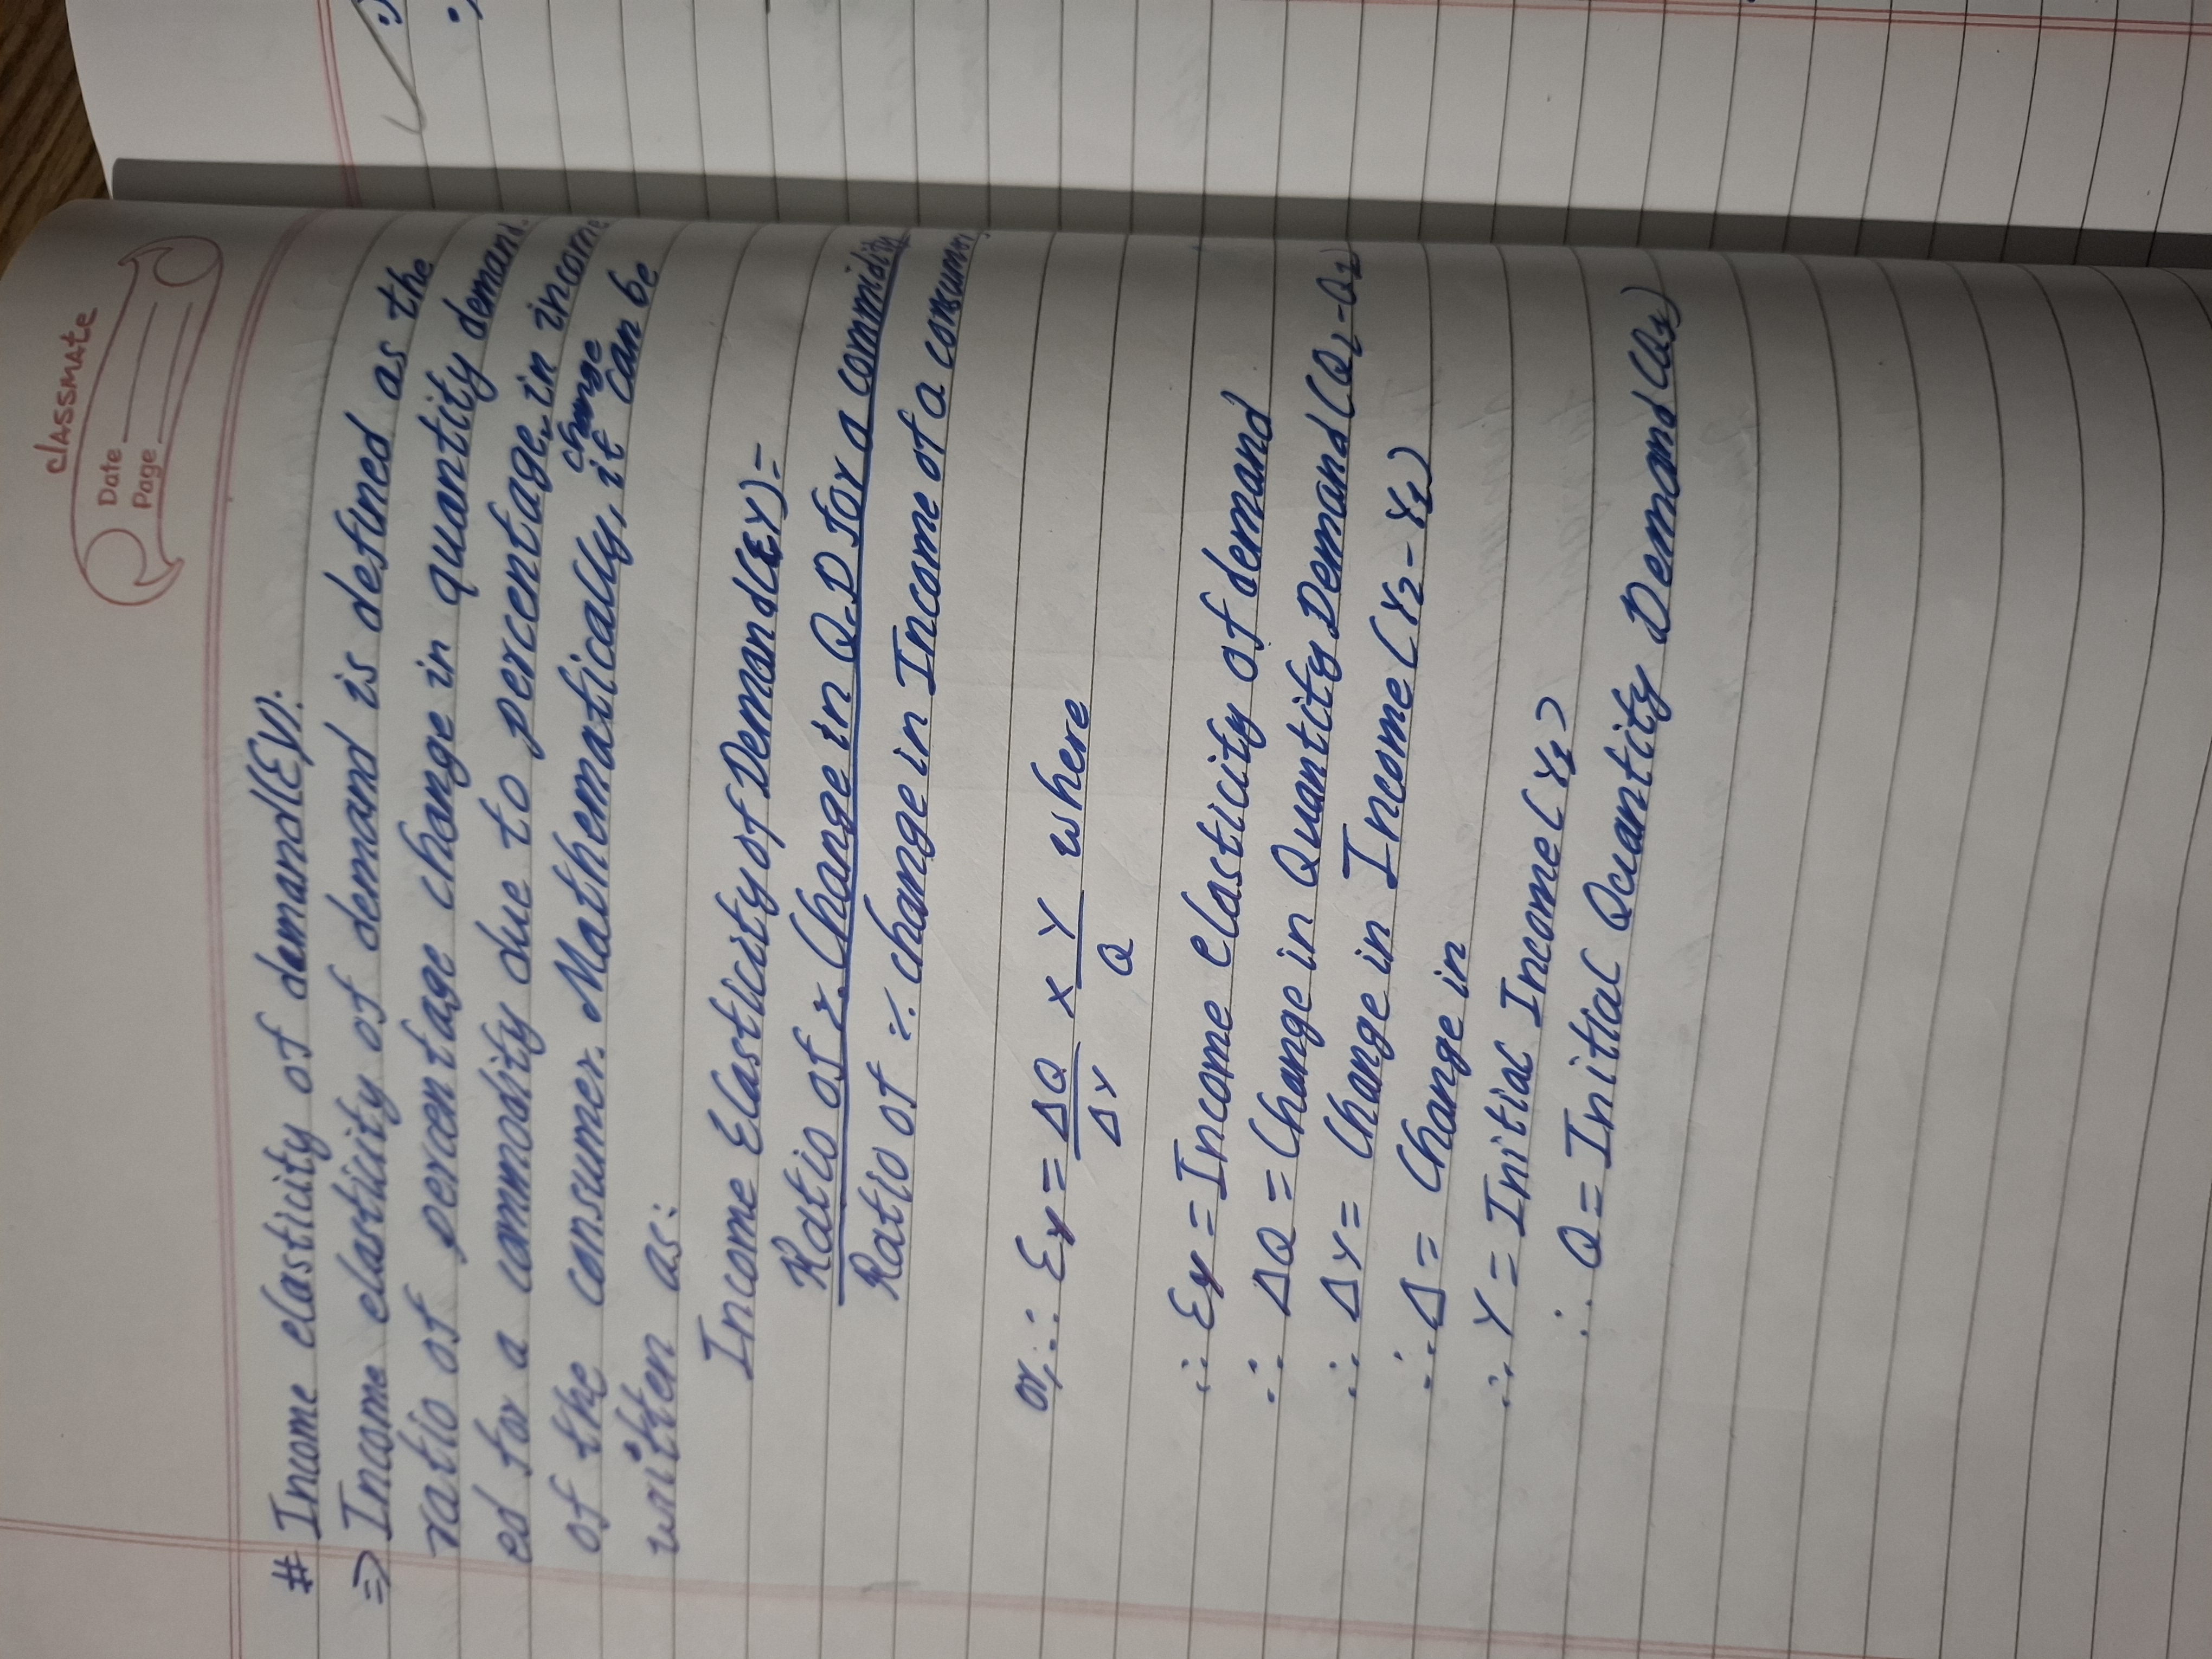 classmate
Date
Page
# Income elasticity of demand(EY):
⇒ Income elasticity of demand is defined as the
ratio of percentage change in quantity demand.
ed for a commodity due to percentage in income
change
of the consumer. Mathematically, it can be
written as:
Income Elasticity of Demand(EY)=
Ratio of % Change in Q.D for a commidity
Ratio of % change in Income of a consumer
or, ∴ Ey = ΔQ/ΔY × Y/Q where
∴ Ey = Income elasticity of demand
∴ ΔQ = Change in Quantity Demand (Q2-Q1)
∴ ΔY = Change in Income (Y2-Y1)
∴ Δ = Change in
∴ Y = Initial Income (Y1)
∴ Q = Initial Quantity Demand (Q1)